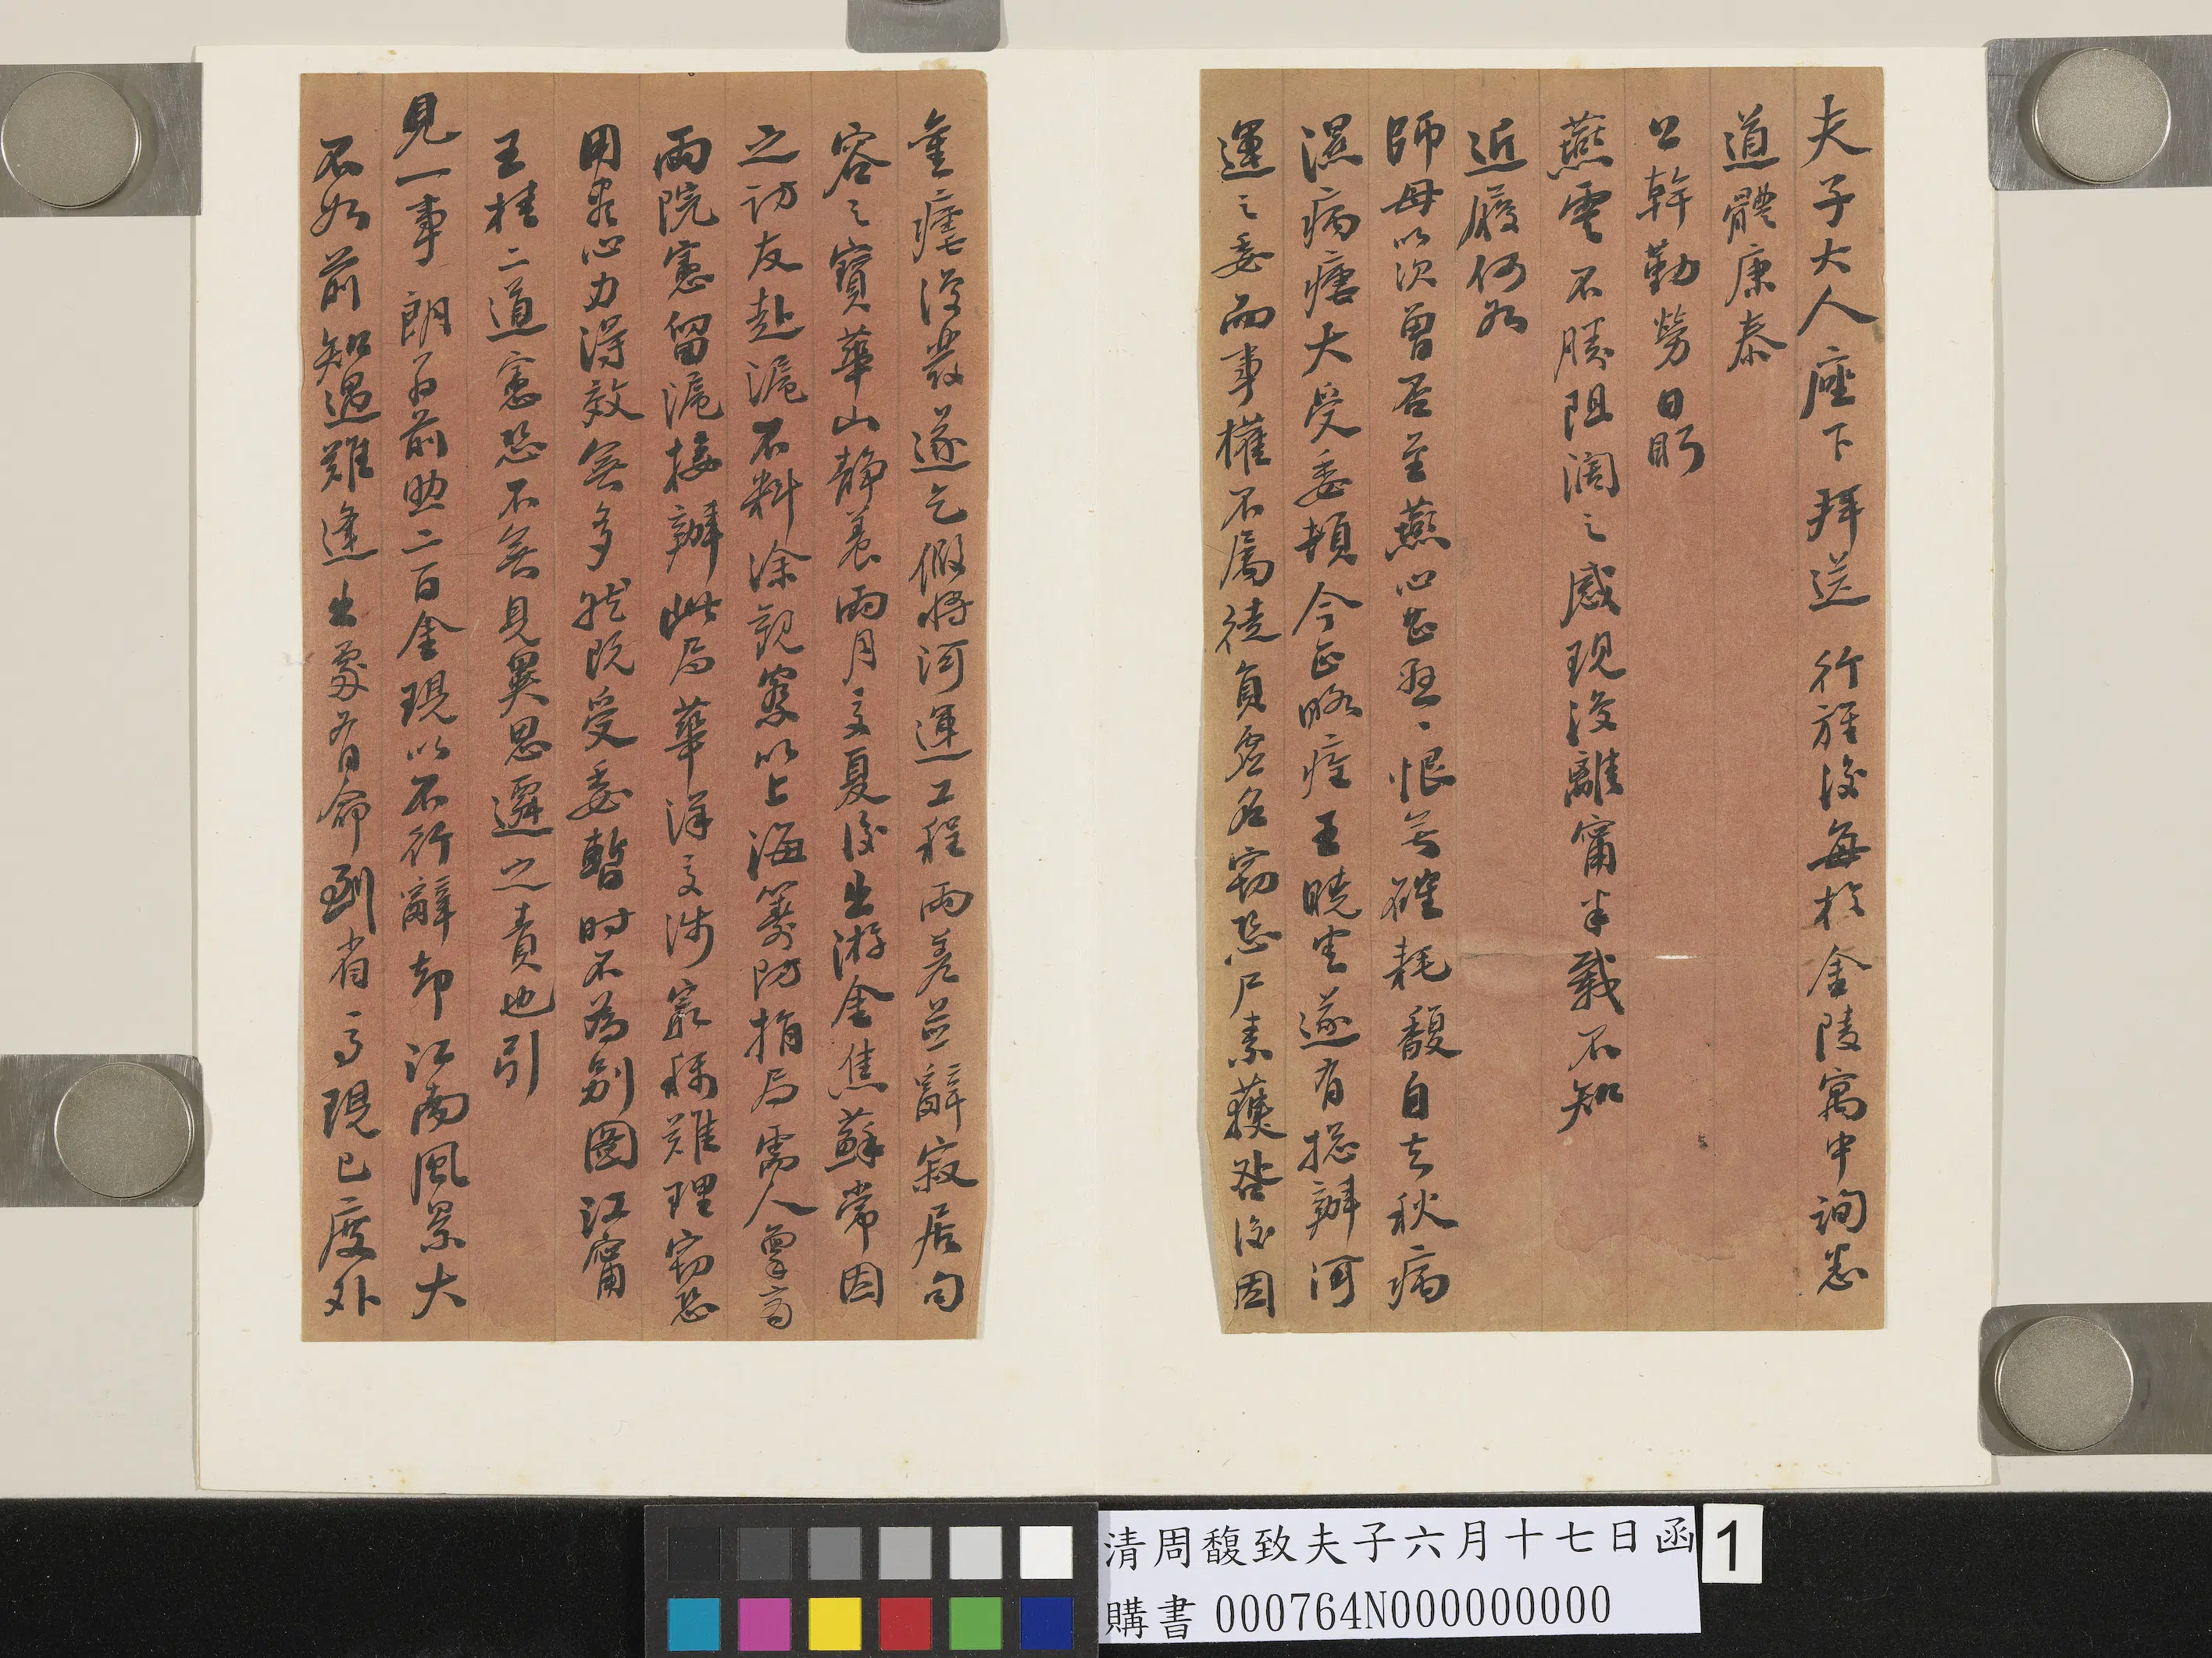 夫子大人座下拜送 行旌後每於金陵寓中詢悉
道體康泰
公幹勤勞日盼
燕雲不勝阻闊之感現後離甯半載不知
近履何如
師母以次曾否至燕心甚懸懸恨無確耗馥自去秋病
濕病瘧大受委頓今正略痊王曉蓮遂有総辦河
運之委而事權不屬徒負虛名竊恐尸素獲咎後因
重瘧復發遂乞假將河運工程兩差並辭寂居句
容之寶華山靜養兩月交夏後出游金焦蘇常因
之訪友赴滬不料涂觀察以上海籌防捐局需人稟商
兩院憲留滬接辦此局華洋交涉最稱難理竊恐
用盡心力得效無多然既受委暫時不為別圖江甯
王桂二道憲恐不無見異思遷之責也引
見一事朗翁前助二百金現以不行辭却江南風景大
不如前知遇難逢出處有命到省與否現已度外
清周馥致夫子六月十七日函
購書 000764N000000000
1